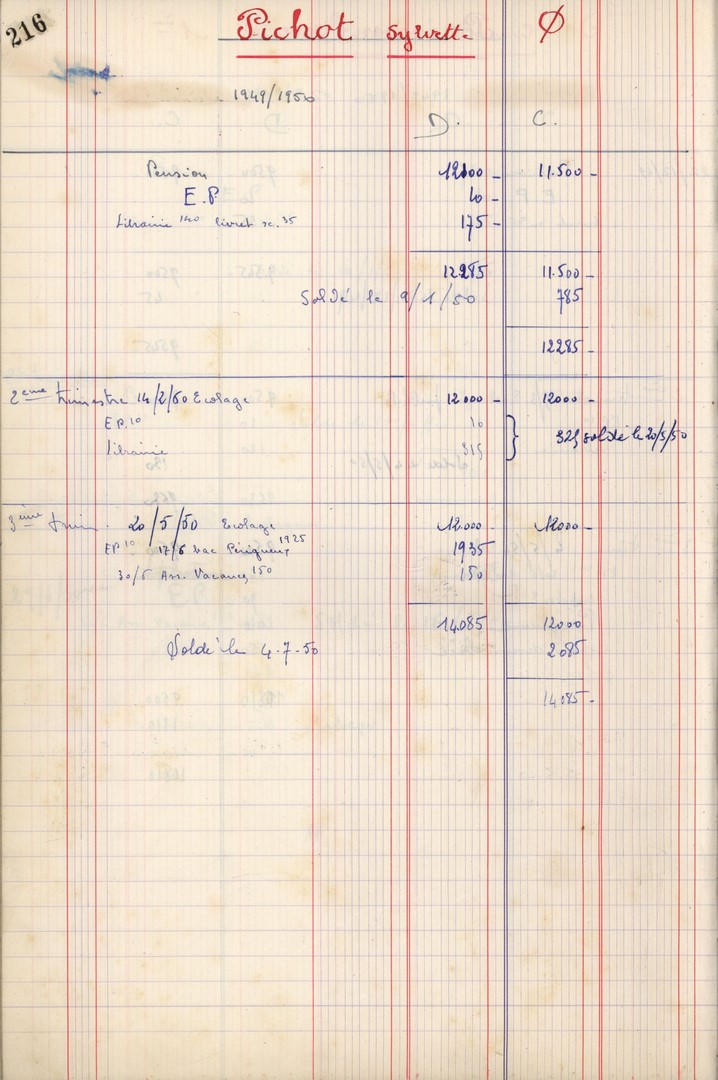 216
Pichot Sylvette Ø
1949/1950
D. C.
Pension 12100 - 11.500 -
E.P 10 -
Librairie 140 livret sc. 35 175 -
12285 11.500 -
Soldé le 9/1/50 785
12285 -
2eme trimestre 14/2/50 Ecolage 12000 - 12000 -
E.P. 10 10
Librairie 315 } 325 soldé le 20/5/50
3ème trim. 20/5/50 Ecolage 12.000 - 12000 -
EP 10 17/6 bac Périgueux 1925 1935
30/6 Ass. Vacances 150 150
14.085 12000
Soldé le 4-7-50 2085
14.085 -